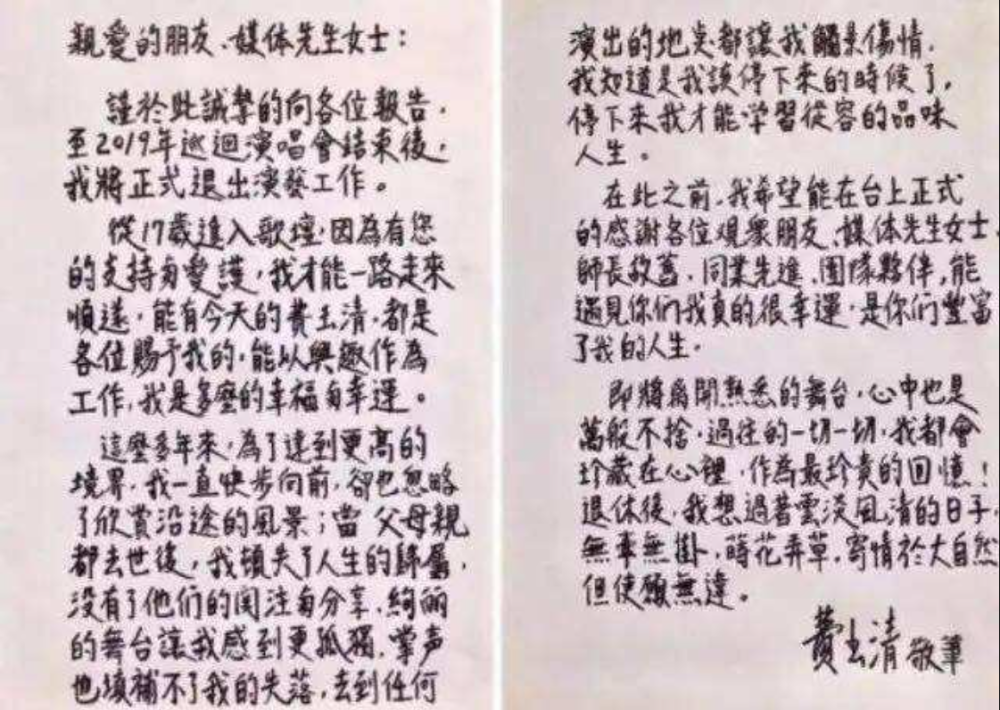 親愛的朋友、媒体先生女士：
謹於此誠摯的向各位報告，
至2019年巡迴演唱會结束後，
我將正式退出演藝工作。
從17歲進入歌壇，因為有您
的支持与愛護，我才能一路走來
順遂，能有今天的費玉清，都是
各位賜予我的，能以興趣作為
工作，我是多麼的幸福与幸運。
這麼多年來，為了達到更高的
境界，我一直快步向前，卻也忽略
了欣賞沿途的風景；當父母親
都去世後，我頓失了人生的歸屬，
没有了他們的関注与分享，絢丽
的舞台讓我感到更孤獨，掌声
也填補不了我的失落，去到任何
演出的地点都讓我觸景傷情，
我知道是我該停下來的時候了，
停下來我才能学習從容的品味
人生。
在此之前，我希望能在台上正式
的感謝各位观眾朋友、媒体先生女士、
師長故舊、同業先進、团隊夥伴，能
遇見你們我真的很幸運，是你們豐富
了我的人生。
即將離開熟悉的舞台，心中也是
萬般不捨，過往的一切一切，我都會
珍藏在心裡，作為最珍貴的回憶！
退休後，我想過著雲淡風清的日子，
無牽無掛，蒔花弄草，寄情於大自然
但使願無違。
費玉清 敬筆